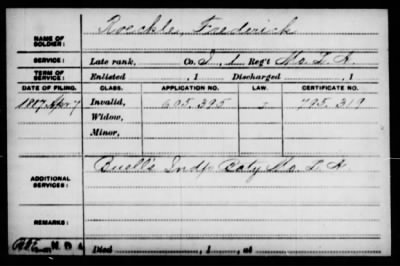 NAME OF SOLDIER: Roeckle, Frederick
SERVICE: Late rank, Co. I, 1 Reg't Mo. L. A.
TERM OF SERVICE: Enlisted , 1 Discharged , 1
DATE OF FILING. CLASS. APPLICATION NO. LAW. CERTIFICATE NO.
1887 Apr 7 Invalid, 605.395 795.319
Widow,
Minor,
ADDITIONAL SERVICES: Buell's Indp. Baty Mo. L. A.
REMARKS:
Died , 1 , at